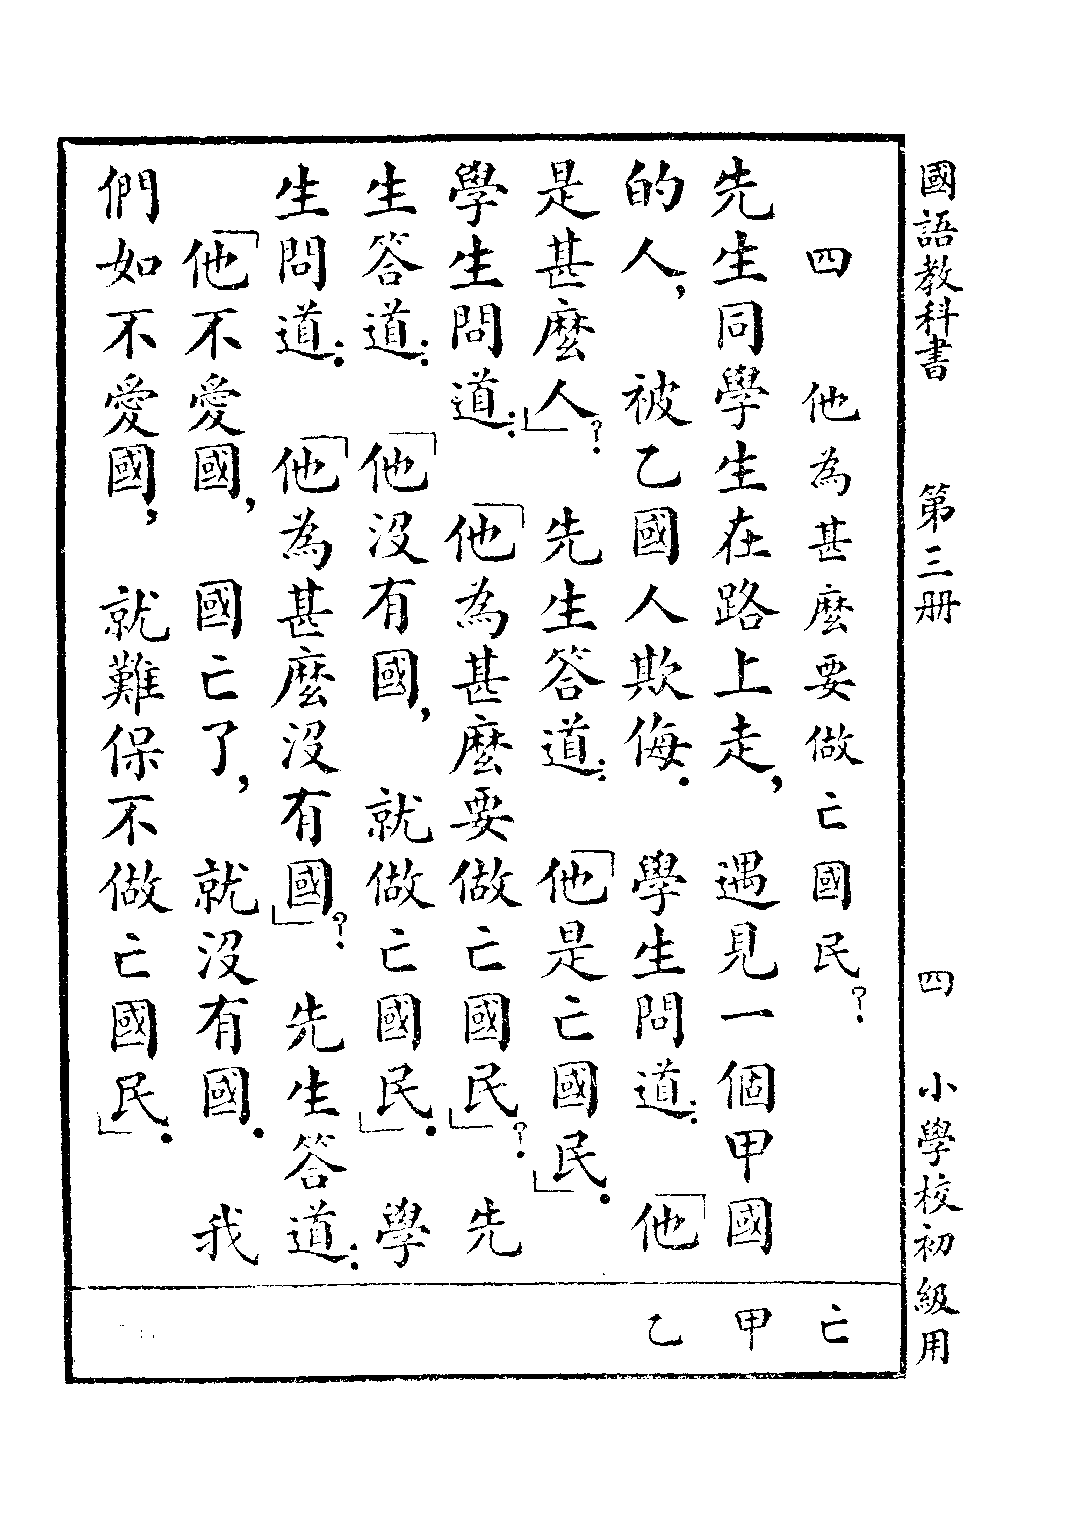 國語教科書　第三册　四　小學校初級用
四　他為甚麼要做亡國民？
先生同學生在路上走，遇見一個甲國
的人，被乙國人欺侮．學生問道：「他
是甚麼人」？先生答道：「他是亡國民」．
學生問道：「他為甚麼要做亡國民」？先
生答道：「他沒有國，就做亡國民」．學
生問道：「他為甚麼沒有國」？先生答道：
「他不愛國，國亡了，就沒有國．我
們如不愛國，就難保不做亡國民」．
亡
甲
乙